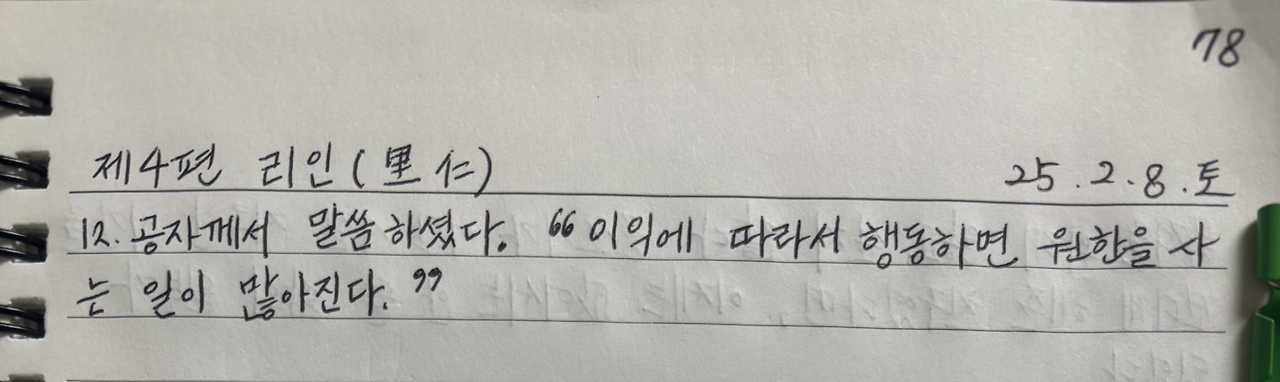 78
제4편 리인(里仁) 25.2.8.토
12. 공자께서 말씀하셨다. "이익에 따라서 행동하면 원한을 사
는 일이 많아진다."